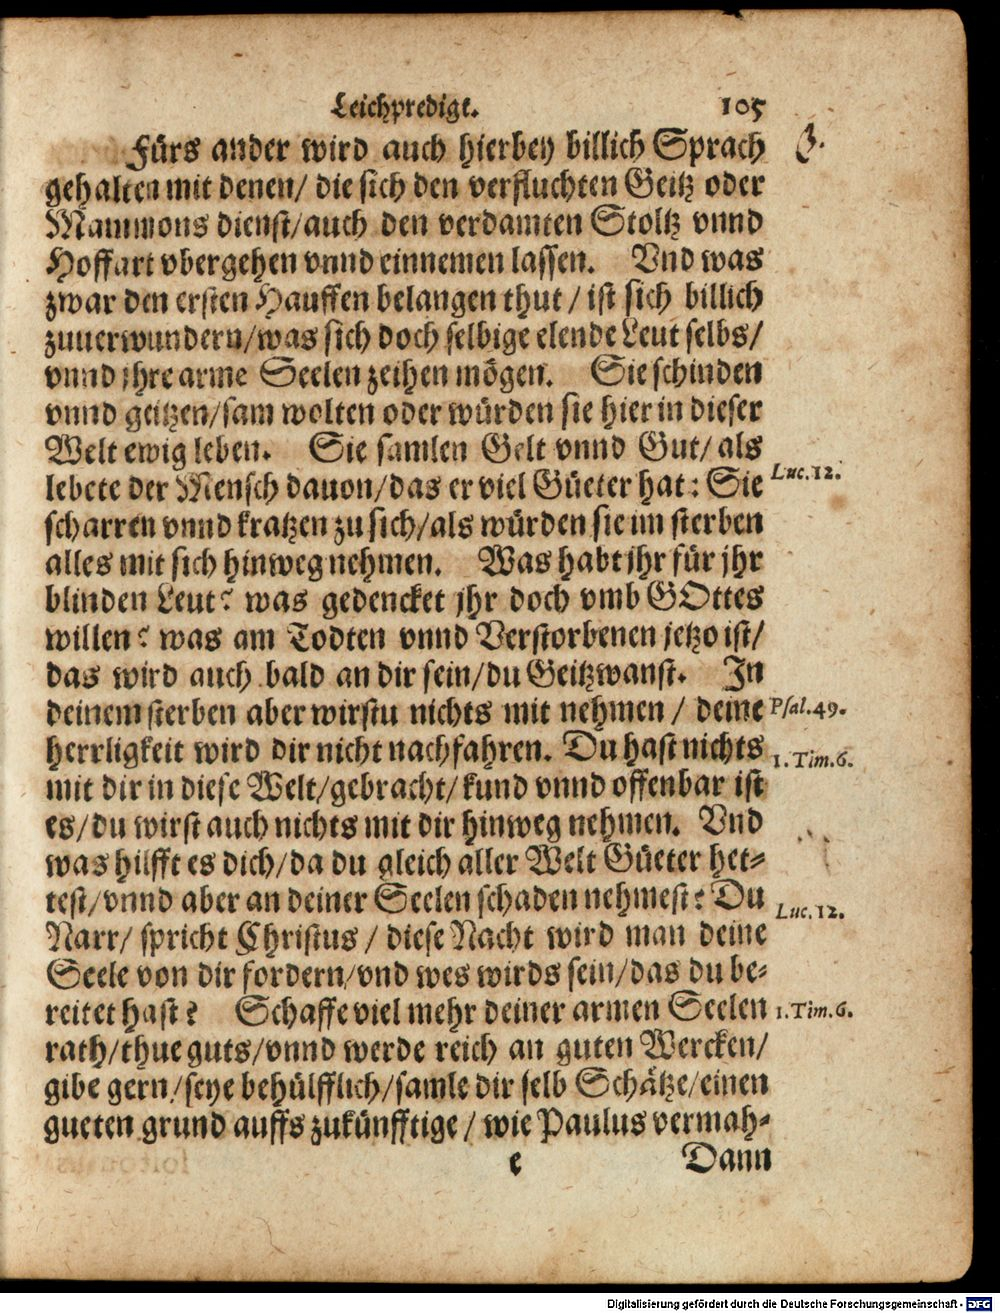 Leichpredigt. 105
Fürs ander wird auch hierbey billich Sprach 3.
gehalten mit denen/ die sich den verfluchten Geitz oder
Mammons dienst/auch den verdamten Stoltz vnnd
Hoffart vbergehen vnnd einnemen lassen. Vnd was
zwar den ersten Hauffen belangen thut / ist sich billich
zuuerwundern/was sich doch selbige elende Leut selbs/
vnnd jhre arme Seelen zeihen mögen. Sie schinden
vnnd geitzen/sam wolten oder würden sie hier in dieser
Welt ewig leben. Sie samlen Gelt vnnd Gut/ als
lebete der Mensch dauon/das er viel Güeter hat: Sie Luc.12.
scharren vnnd kratzen zu sich/als würden sie im sterben
alles mit sich hinweg nehmen. Was habt jhr für jhr
blinden Leut? was gedencket jhr doch vmb GOttes
willen? was am Todten vnnd Verstorbenen jetzo ist/
das wird auch bald an dir sein/du Geitzwanst. In
deinem sterben aber wirstu nichts mit nehmen / deine Psal.49.
herrligkeit wird dir nicht nachfahren. Du hast nichts
mit dir in diese Welt/gebracht/kund vnnd offenbar ist 1.Tim.6.
es/du wirst auch nichts mit dir hinweg nehmen. Vnd
was hilfft es dich/da du gleich aller Welt Güeter het-
test/vnnd aber an deiner Seelen schaden nehmest? Du Luc.12.
Narr/ spricht Christus / diese Nacht wird man deine
Seele von dir fordern/vnd wes wirds sein/das du be-
reitet hast? Schaffe viel mehr deiner armen Seelen 1.Tim.6.
rath/thue guts/vnnd werde reich an guten Wercken/
gibe gern/seye behülfflich/samle dir selb Schätze/einen
gueten grund auffs zukünfftige / wie Paulus vermah-
e Dann
Digitalisierung gefördert durch die Deutsche Forschungsgemeinschaft - DFG